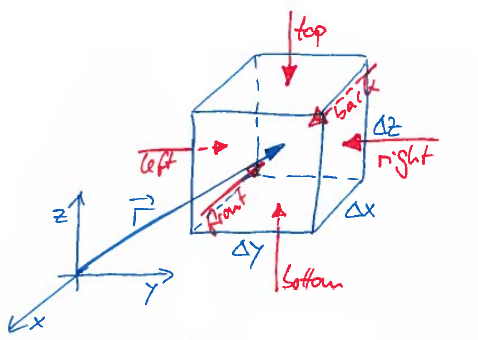 top
back
Δz
left
right
z
r
front
Δx
Δy
y
bottom
x